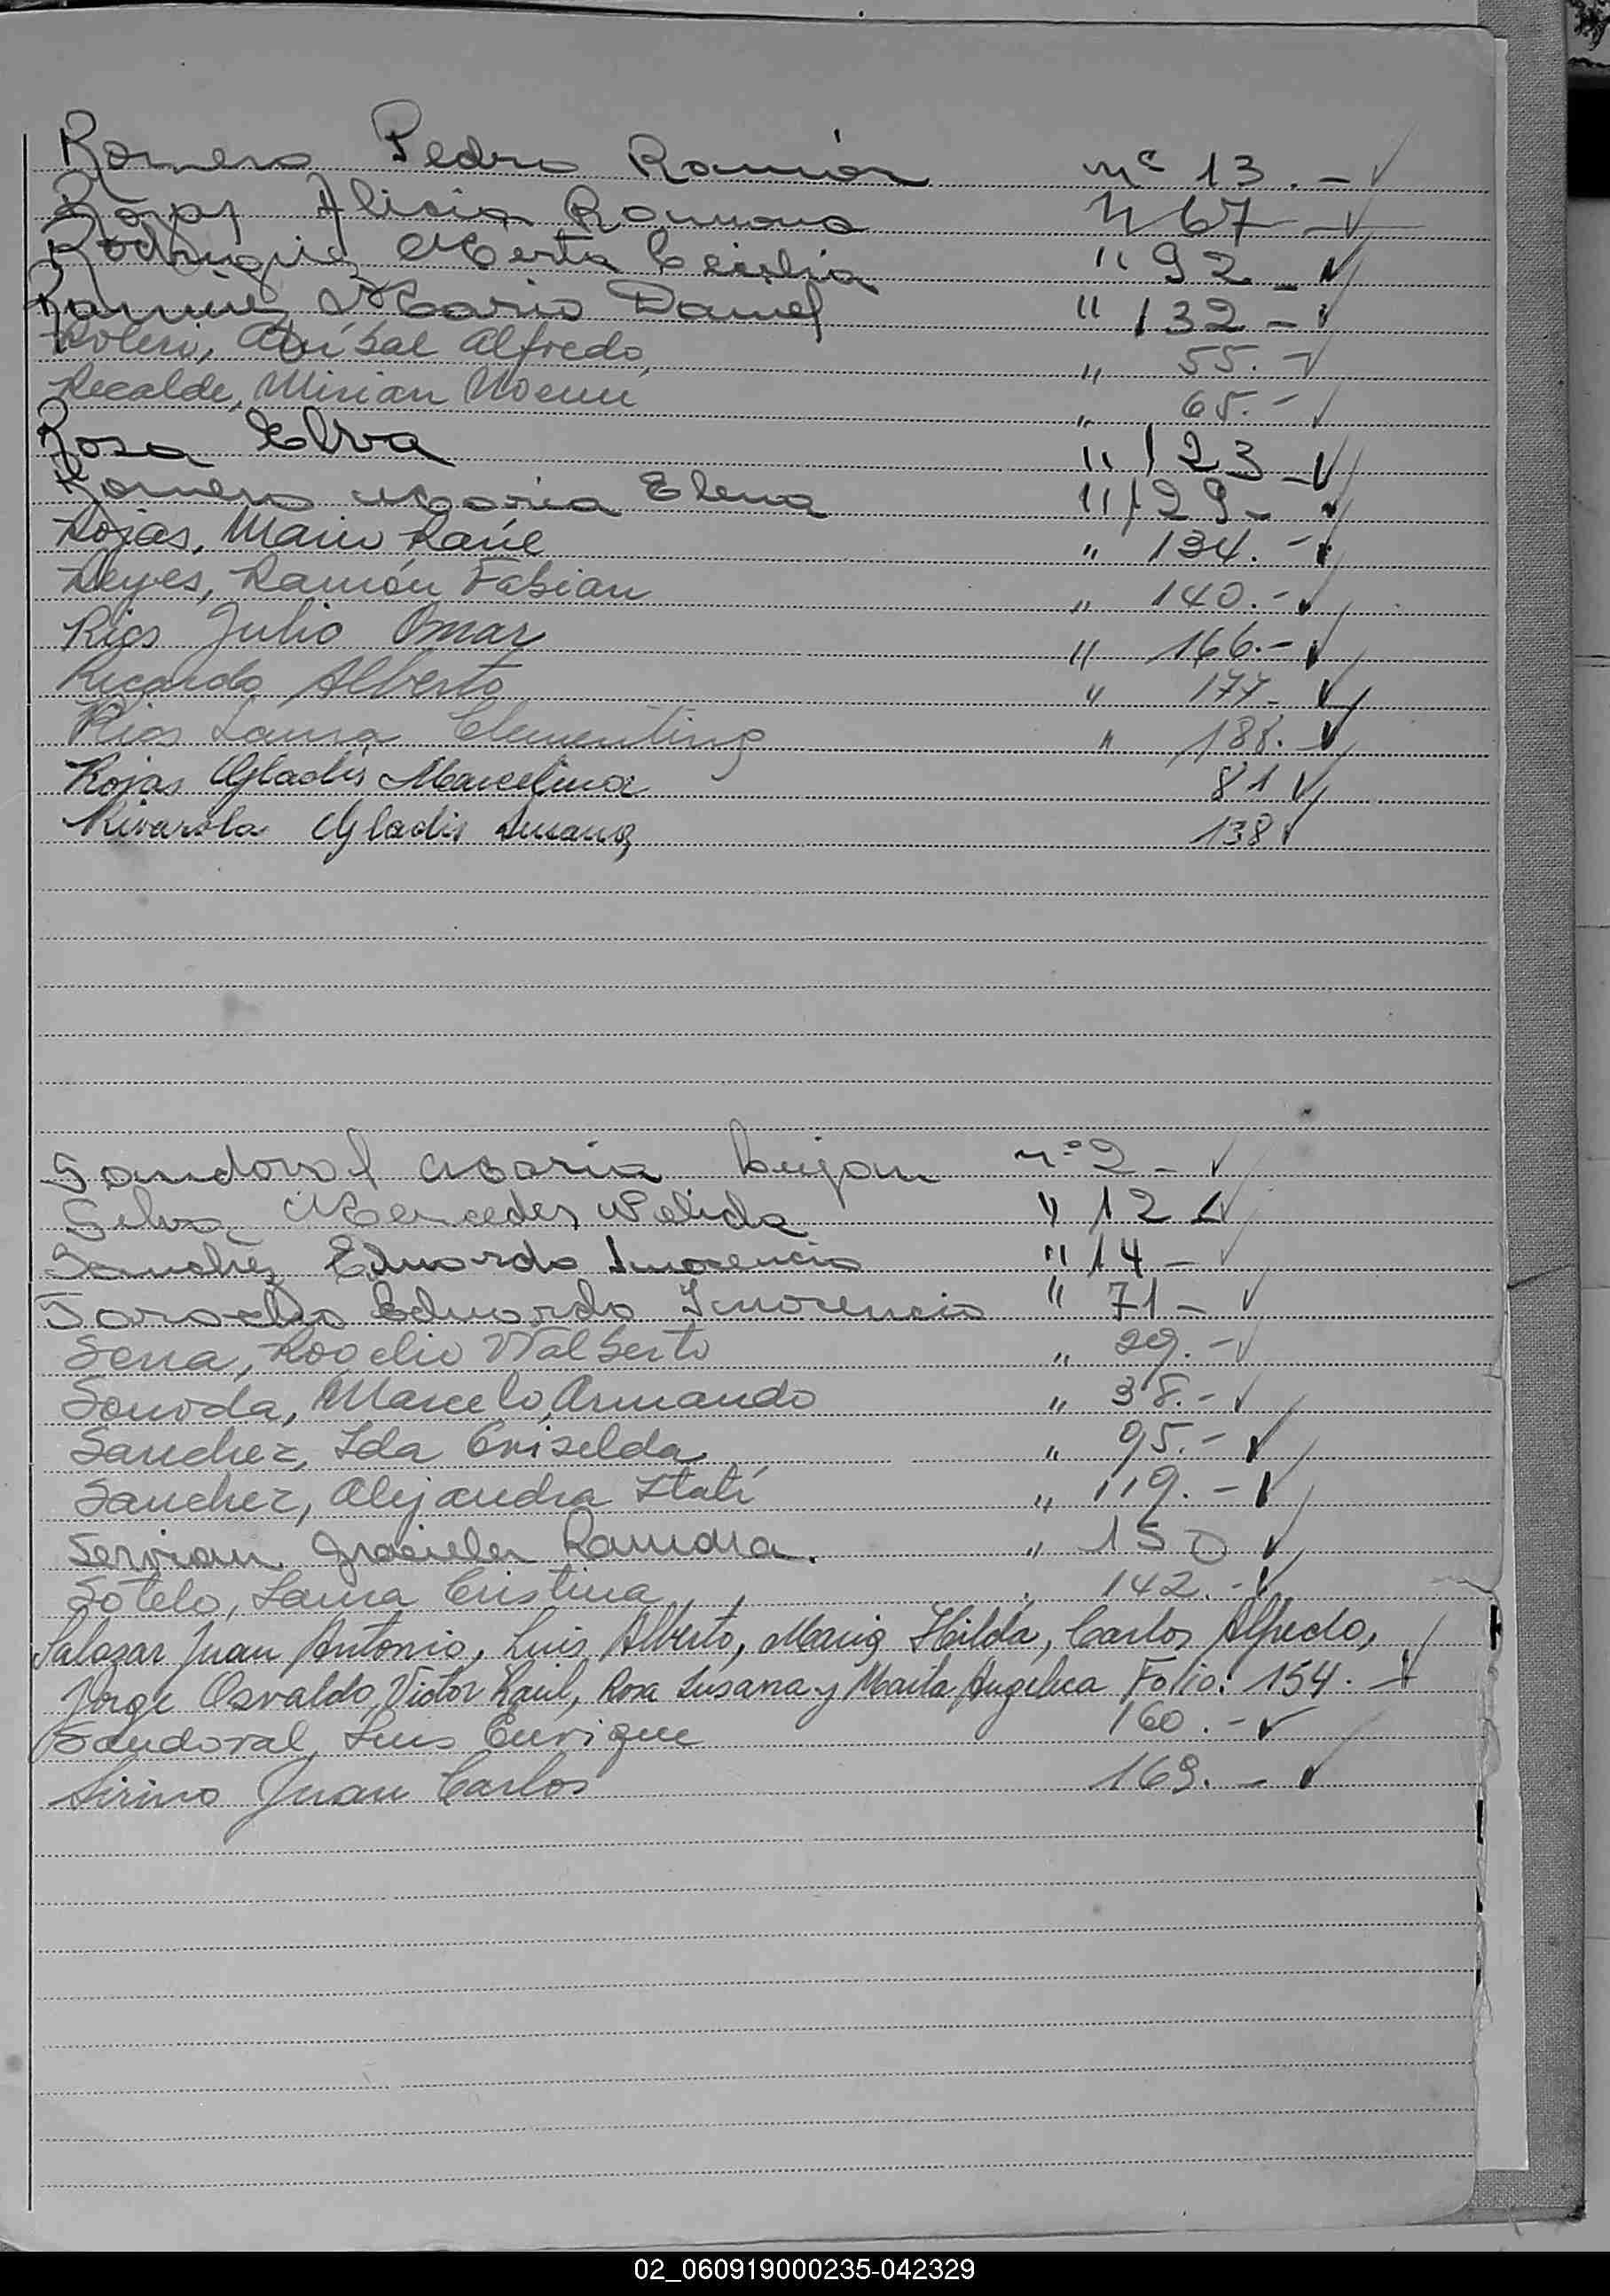 Romero Pedro Ramón nº 13.-
Rojas Alicia Ramona " 67-
Rodriguez Mirta Cecilia " 92-
Ramirez Mario Daniel " 132-
Roleri, Aníbal Alfredo, " 55.-
Recalde, Mirian Noemi " 65.-
Rosa Elva " 123-
Romero Maria Elena " 129-
Rojas, Mario Raúl " 134.-
Reyes, Ramón Fabian " 140.-
Rios Julio Omar " 166.-
Ricardo Alberto " 177-
Rios Laura Clementina " 188.-
Rojas Gladis Marcelina 81
Rivarola Gladis Susana 138
Sandoval Maria Lujan nº 2-
Silva Mercedes Nelida " 12
Sanchez Eduardo Inocencio " 14-
Eduardo Inocencio " 71-
Sena, Rogelio Walberto " 29.-
Souvda, Marcelo Armando " 38.-
Sanchez, Ida Griselda " 95.-
Sanchez, Alejandra Itatí " 119.-
Servian Graciela Ramona. " 150
Sotelo, Laura Cristina 142.-
Salazar Juan Antonio, Luis Alberto, Maria Hilda, Carlos Alfredo,
Jorge Osvaldo, Victor Raúl, Rosa Susana y Marta Angelica Folio: 154.-
Sandoval, Luis Enrique 160.-
Sirino Juan Carlos 169.-
02_060919000235-042329